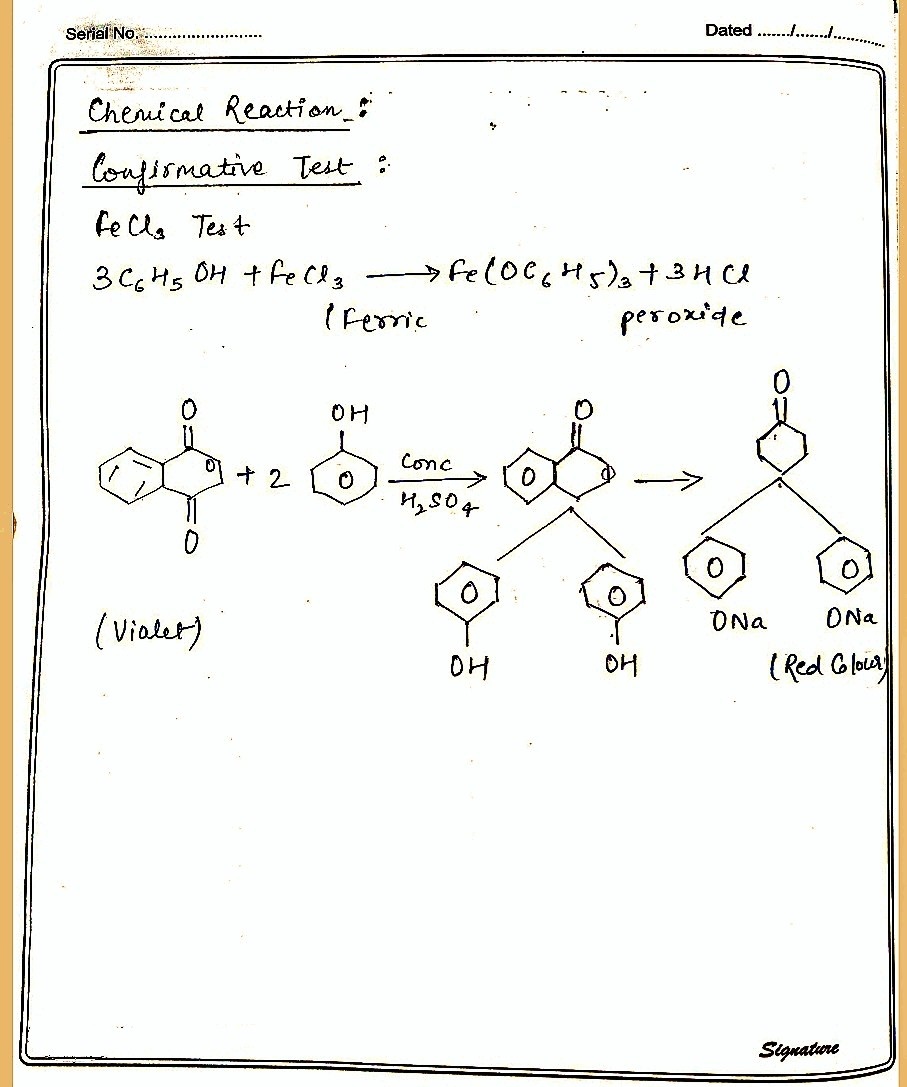 Serial No. ............................ Dated ......./......./.............
Chemical Reaction :
Confirmative Test :
FeCl₃ Test
3C₆H₅OH + FeCl₃ ⟶ Fe(OC₆H₅)₃ + 3HCl
(Ferric peroxide
O OH O O
O + 2 O Conc H₂SO₄ ⟶ O O ⟶
O
O O O O
(Vialet) OH OH ONa ONa
(Red Colour)
Signature